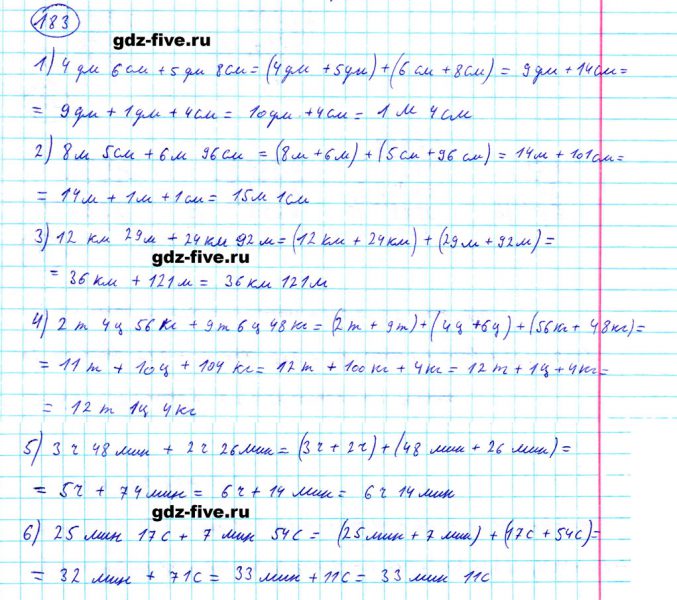 183
gdz-five.ru
1) 4 дм 6 см + 5 дм 8 см = (4 дм + 5 дм) + (6 см + 8 см) = 9 дм + 14 см =
= 9 дм + 1 дм + 4 см = 10 дм + 4 см = 1 м 4 см
2) 8 м 5 см + 6 м 96 см = (8 м + 6 м) + (5 см + 96 см) = 14 м + 101 см =
= 14 м + 1 м + 1 см = 15 м 1 см
3) 12 км 29 м + 24 км 92 м = (12 км + 24 км) + (29 м + 92 м) =
gdz-five.ru
= 36 км + 121 м = 36 км 121 м
4) 2 т 4 ц 56 кг + 9 т 6 ц 48 кг = (2 т + 9 т) + (4 ц + 6 ц) + (56 кг + 48 кг) =
= 11 т + 10 ц + 104 кг = 12 т + 100 кг + 4 кг = 12 т + 1 ц + 4 кг =
= 12 т 1 ц 4 кг
5) 3 ч 48 мин + 2 ч 26 мин = (3 ч + 2 ч) + (48 мин + 26 мин) =
= 5 ч + 74 мин = 6 ч + 14 мин = 6 ч 14 мин
gdz-five.ru
6) 25 мин 17 с + 7 мин 54 с = (25 мин + 7 мин) + (17 с + 54 с) =
= 32 мин + 71 с = 33 мин + 11 с = 33 мин 11 с